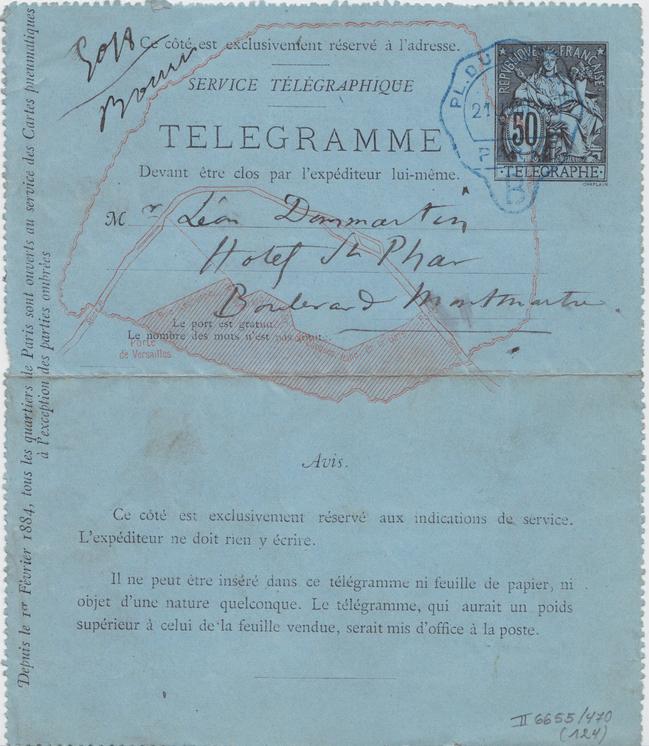 Ce côté est exclusivement réservé à l'adresse.
SERVICE TÉLÉGRAPHIQUE
TÉLÉGRAMME
Devant être clos par l'expéditeur lui-même.
RÉPUBLIQUE FRANÇAISE
50
TÉLÉGRAPHE
CHAPLAIN
PL. DU
21
B
Mr Léon Dommartin
Hotel St Phar
Boulevard Montmartre
Le port est gratuit.
Le nombre des mots n'est pas
Porte
de Versailles
Depuis le 1er Février 1884, tous les quartiers de Paris sont ouverts au service des Cartes pneumatiques
à l'exception des parties ombrées
Avis.
Ce côté est exclusivement réservé aux indications de service.
L'expéditeur ne doit rien y écrire.
Il ne peut être inséré dans ce télégramme ni feuille de papier, ni
objet d'une nature quelconque. Le télégramme, qui aurait un poids
supérieur à celui de la feuille vendue, serait mis d'office à la poste.
II 6655/470
(124)